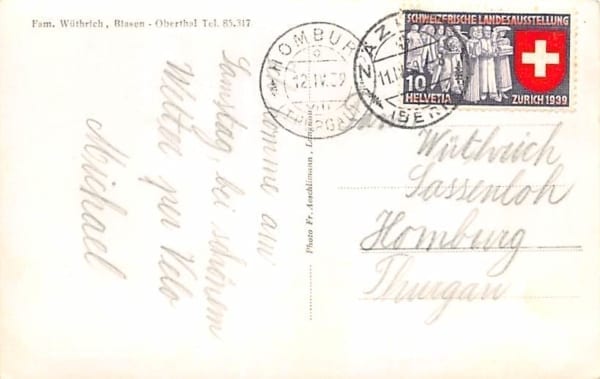 Fam. Wüthrich, Blasen - Oberthal Tel. 85.317
Komme am
Samstag, bei schönem
Wetter per Velo
Michael
Photo Fr. Aeschlimann, Langnau
HOMBURG
12.IV.39
(THURGAU)
ZÄZI
11.IV.39
(BERN)
SCHWEIZERISCHE LANDESAUSSTELLUNG
10
HELVETIA
ZURICH 1939
Wüthrich
Sassenloh
Homburg
Thurgau